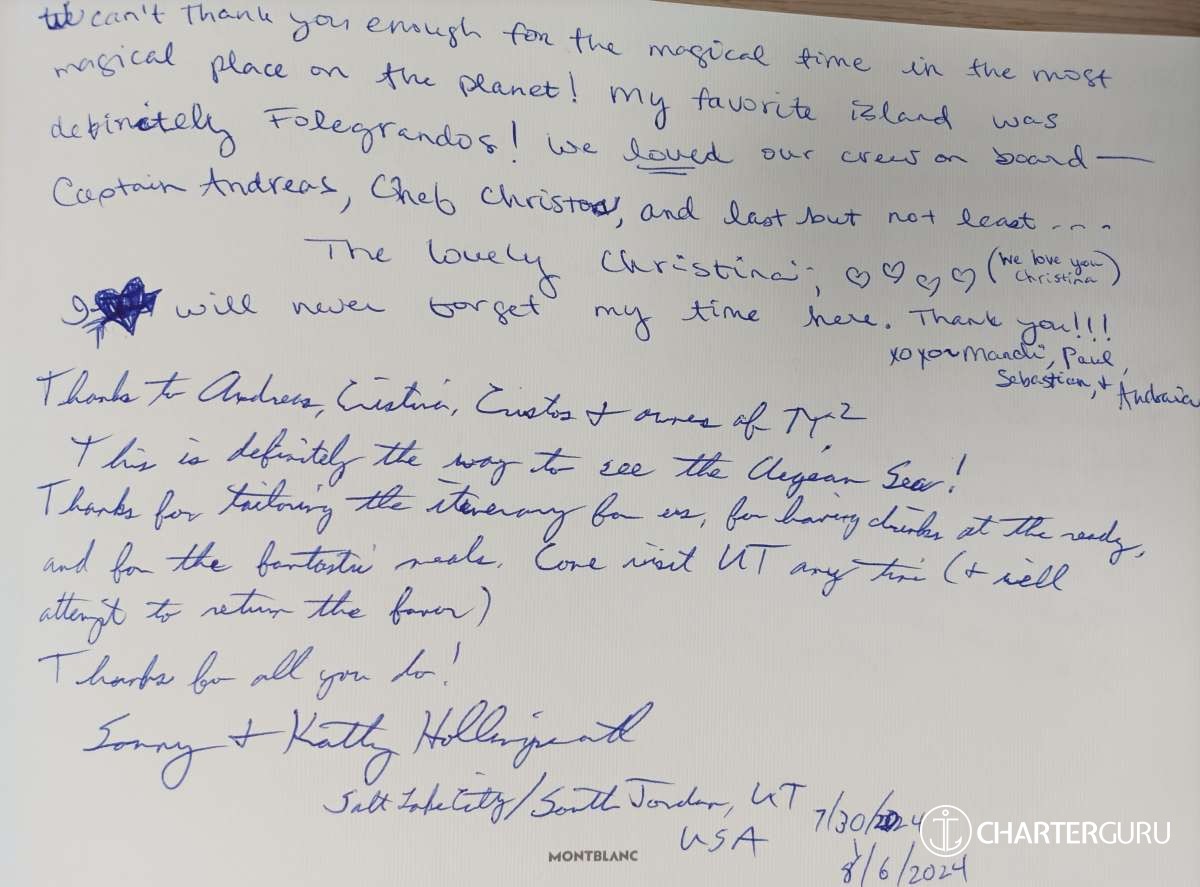 We can't thank you enough for the magical time in the most
magical place on the planet! My favorite island was
definitely Folegrandos! We loved our crew on board —
Captain Andreas, Chef Christos, and last but not least ....
The lovely Christina; ♡ ♡ ♡ ♡ (We love you Christina)
I will never forget my time here. Thank you!!!
xoxo ~ Mandi, Paul,
Sebastian, + Andraia
Thanks to Andreas, Cristina, Cristos + owners of
This is definitely the way to see the Aegean Sea!
Thanks for tailoring the itenerary for us, for having drinks at the ready,
and for the fantastic meals. Come visit UT any time (+ we'll
attempt to return the favor)
Thanks for all you do!
Sonny + Kathy
Salt Lake City/South Jordan, UT
USA
7/30/2024
8/6/2024
MONTBLANC
CHARTERGURU